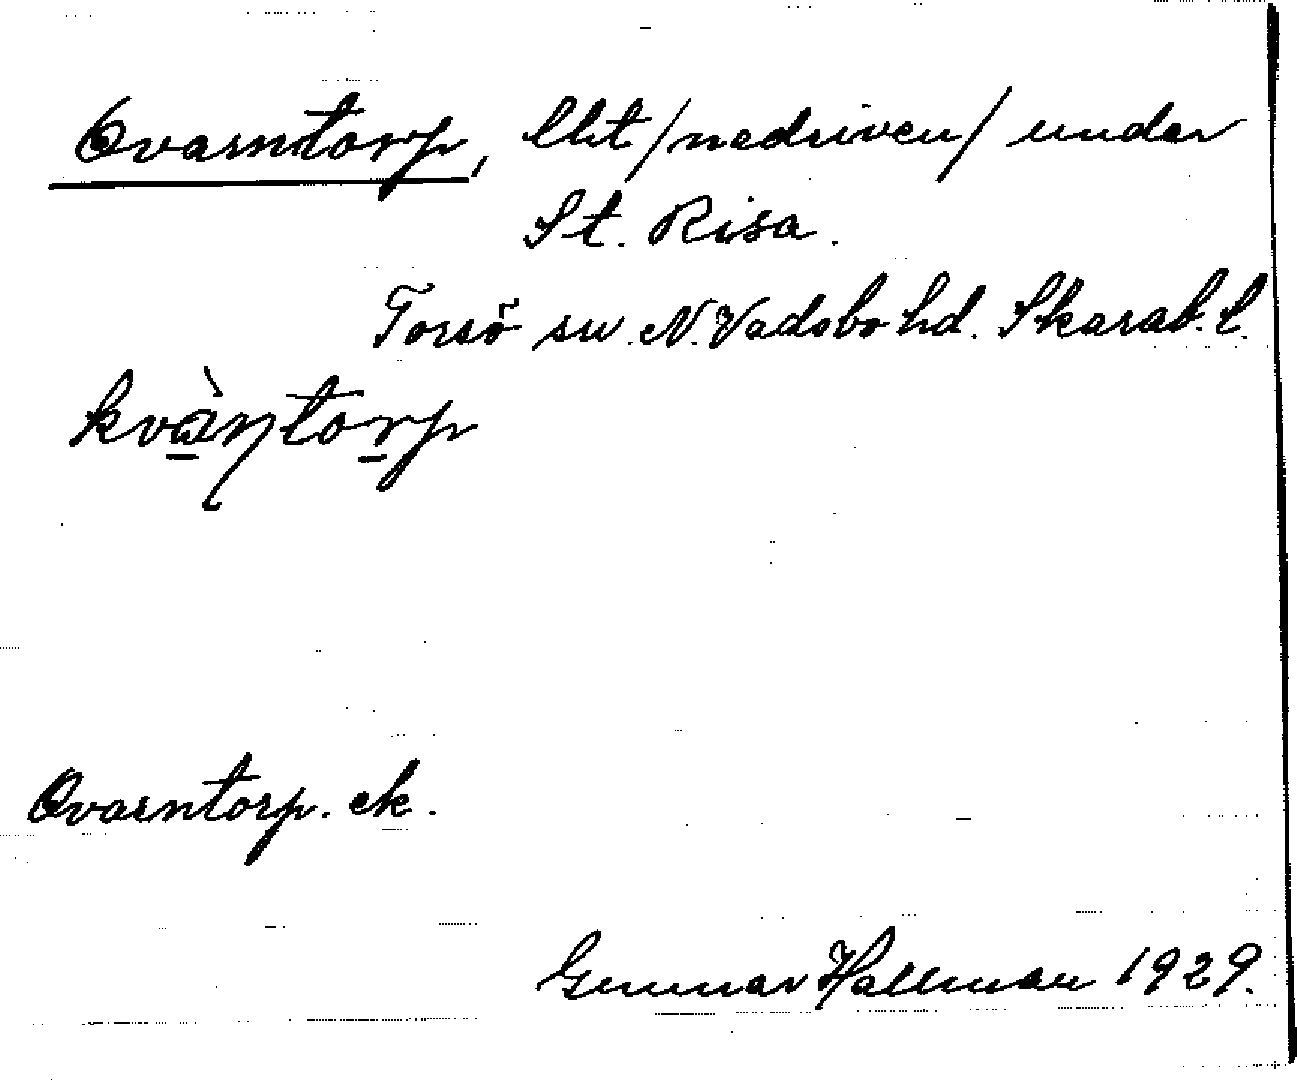 Qvarntorp, lht /nedriven/ under
St. Risa.
Torsö sn. N. Vadsbo hd. Skarab. l.
kvàṇtorp
Qvarntorp. ek.
Gunnar Hallman 1929.